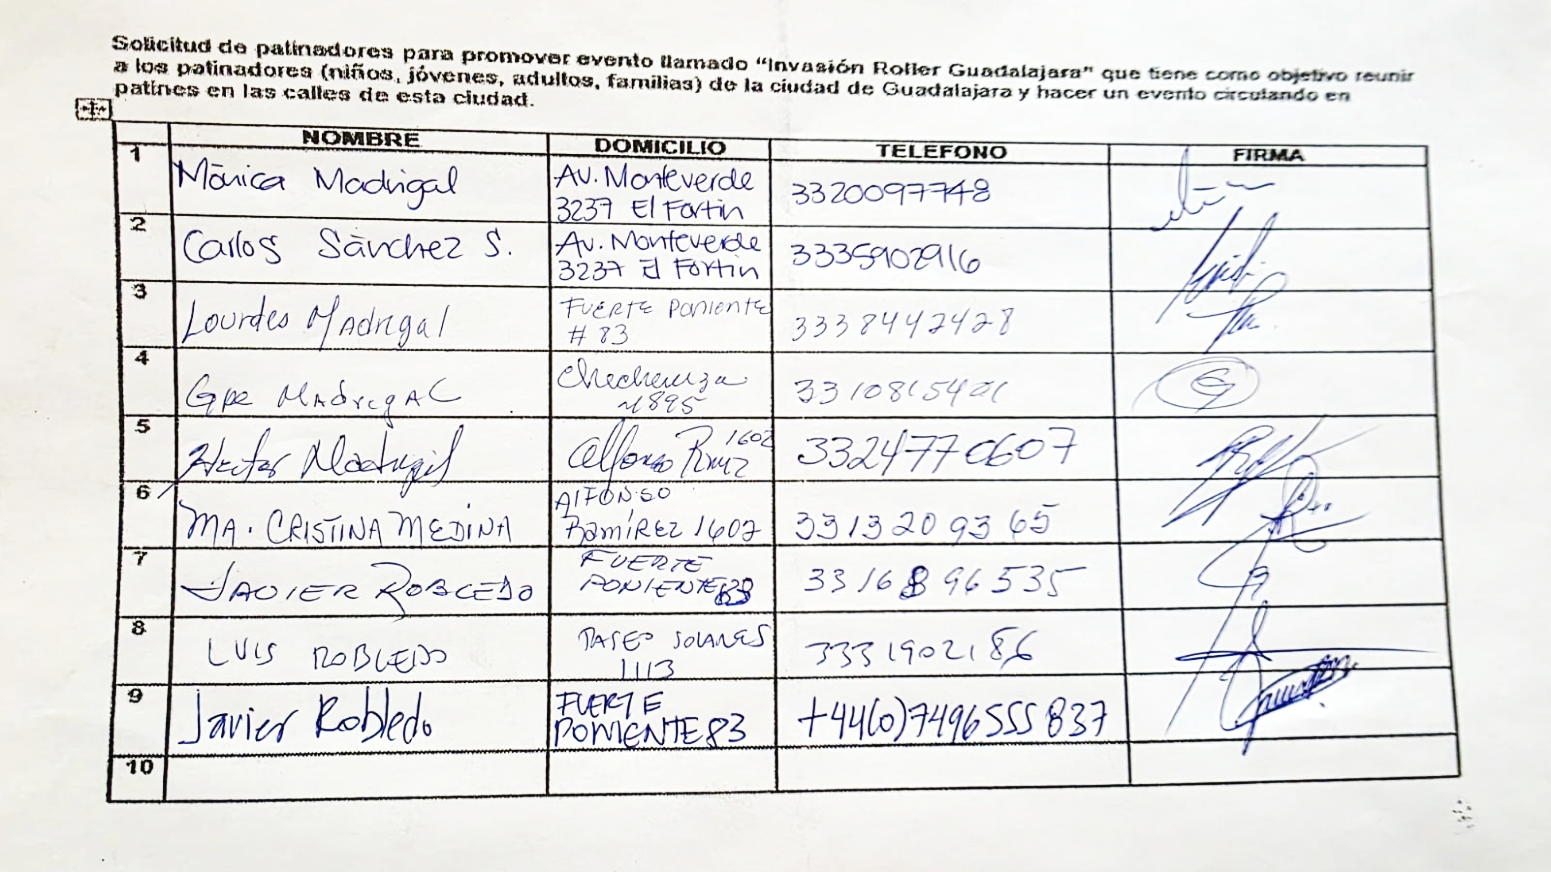 Solicitud de patinadores para promover evento llamado "Invasión Roller Guadalajara" que tiene como objetivo reunir
a los patinadores (niños, jóvenes, adultos, familias) de la ciudad de Guadalajara y hacer un evento circulando en
patines en las calles de esta ciudad.
NOMBRE DOMICILIO TELEFONO FIRMA
1 Mónica Madrigal Av. Monteverde 3320097748
3237 El Fortin
2 Carlos Sánchez S. Av. Monteverde 3335902916
3237 El Fortin
3 Lourdes Madrigal FUERTE Poniente 3338442428
# 83
4 Gpe Madrigal C 3310815401
1895
5 Hector Madrigal Alfonso Rmz 1602 3324770607
6 MA. CRISTINA MEDINA Alfonso
Ramírez 1602 3313209365
7 JAVIER ROBLEDO FUERTE
PONIENTE 83 3316896535
8 LUIS ROBLEDO PASEO SOLARES
1113 3331902186
9 Javier Robledo FUERTE
PONIENTE 83 +44(0)7496555837
10